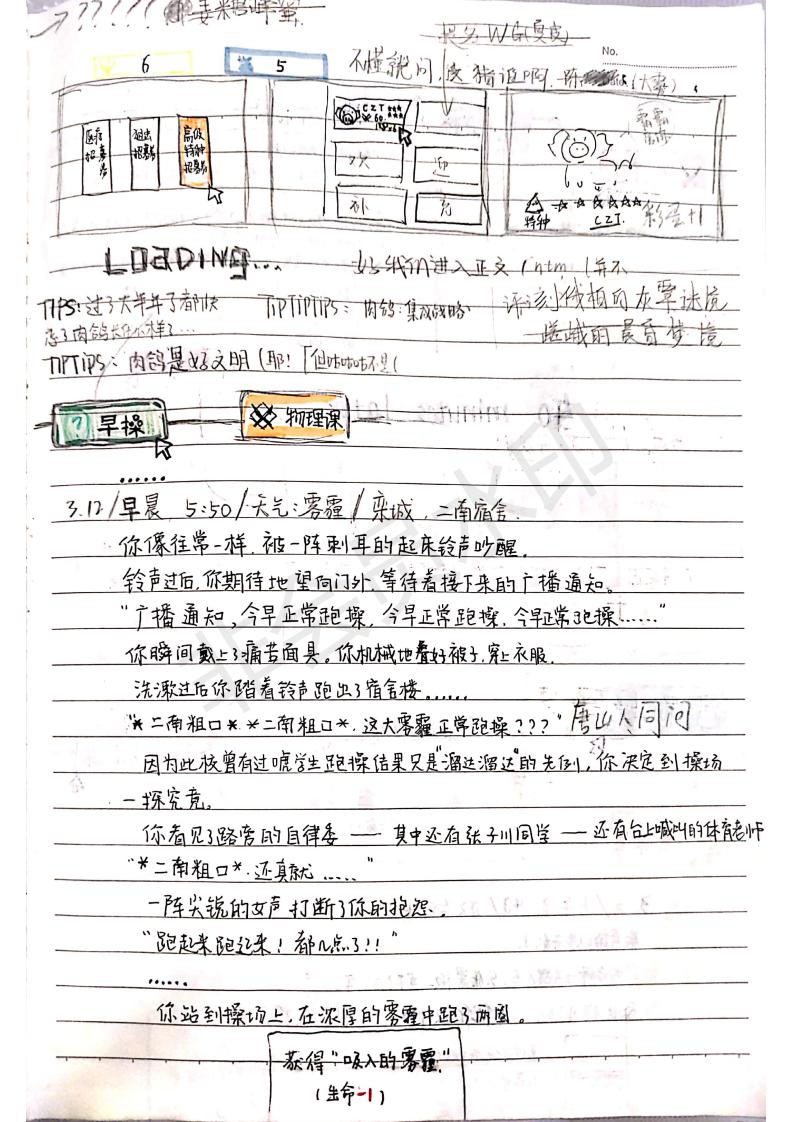 ？？？！！
No.
6
5
不懂就问，
医疗招募券
狙击招募券
高级特种招募券
CZT ☆☆☆
欢
迎
补
充
特种
☆☆☆☆☆☆
CZT.
彩蛋+1
LOADING...
好 我们进入正文
TIPS: 过了大半年了都快
忘了肉鸽长什么样了...
TIPTIPTIPS: 肉鸽:集成战略
TIPTIPS: 肉鸽是好文明(耶!
早操
物理课
......
3.12/早晨 5:50/天气:雾霾/栾城，二南宿舍.
你像往常一样，被一阵刺耳的起床铃声吵醒.
铃声过后，你期待地望向门外，等待着接下来的广播通知。
“广播通知，今早正常跑操，今早正常跑操，今早正常跑操……”
你瞬间戴上了痛苦面具。你机械地叠好被子，穿上衣服.
洗漱过后你踏着铃声跑出了宿舍楼……
“*二南粗口*，*二南粗口*，这大雾霾正常跑操???”
唐山人同问
因为此校曾有过唬学生跑操结果只是“溜达溜达”的先例，你决定到操场
一探究竟。
你看见了路旁的自律委——其中还有张子川同学——还有台上喊叫的体育老师
“*二南粗口*，还真就……”
一阵尖锐的女声打断了你的抱怨.
“跑起来跑起来！都几点了!!”
......
你站到操场上，在浓厚的雾霾中跑了两圈。
获得“吸入的雾霾”
(生命-1)
非会员水印